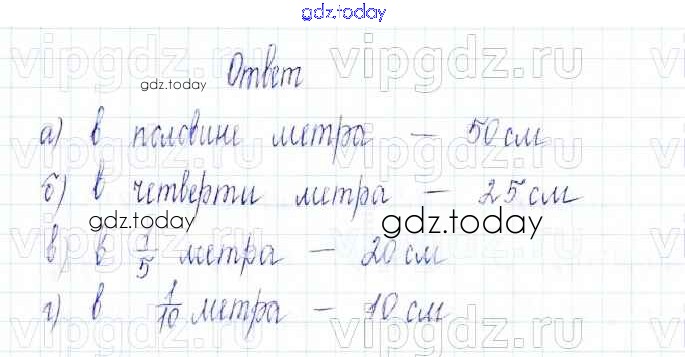 gdz.today
Ответ
gdz.today
а) в половине метра — 50 см
б) в четверти метра — 25 см
gdz.today
gdz.today
в) в 1/5 метра — 20 см
г) в 1/10 метра — 10 см
vipgdz.ru